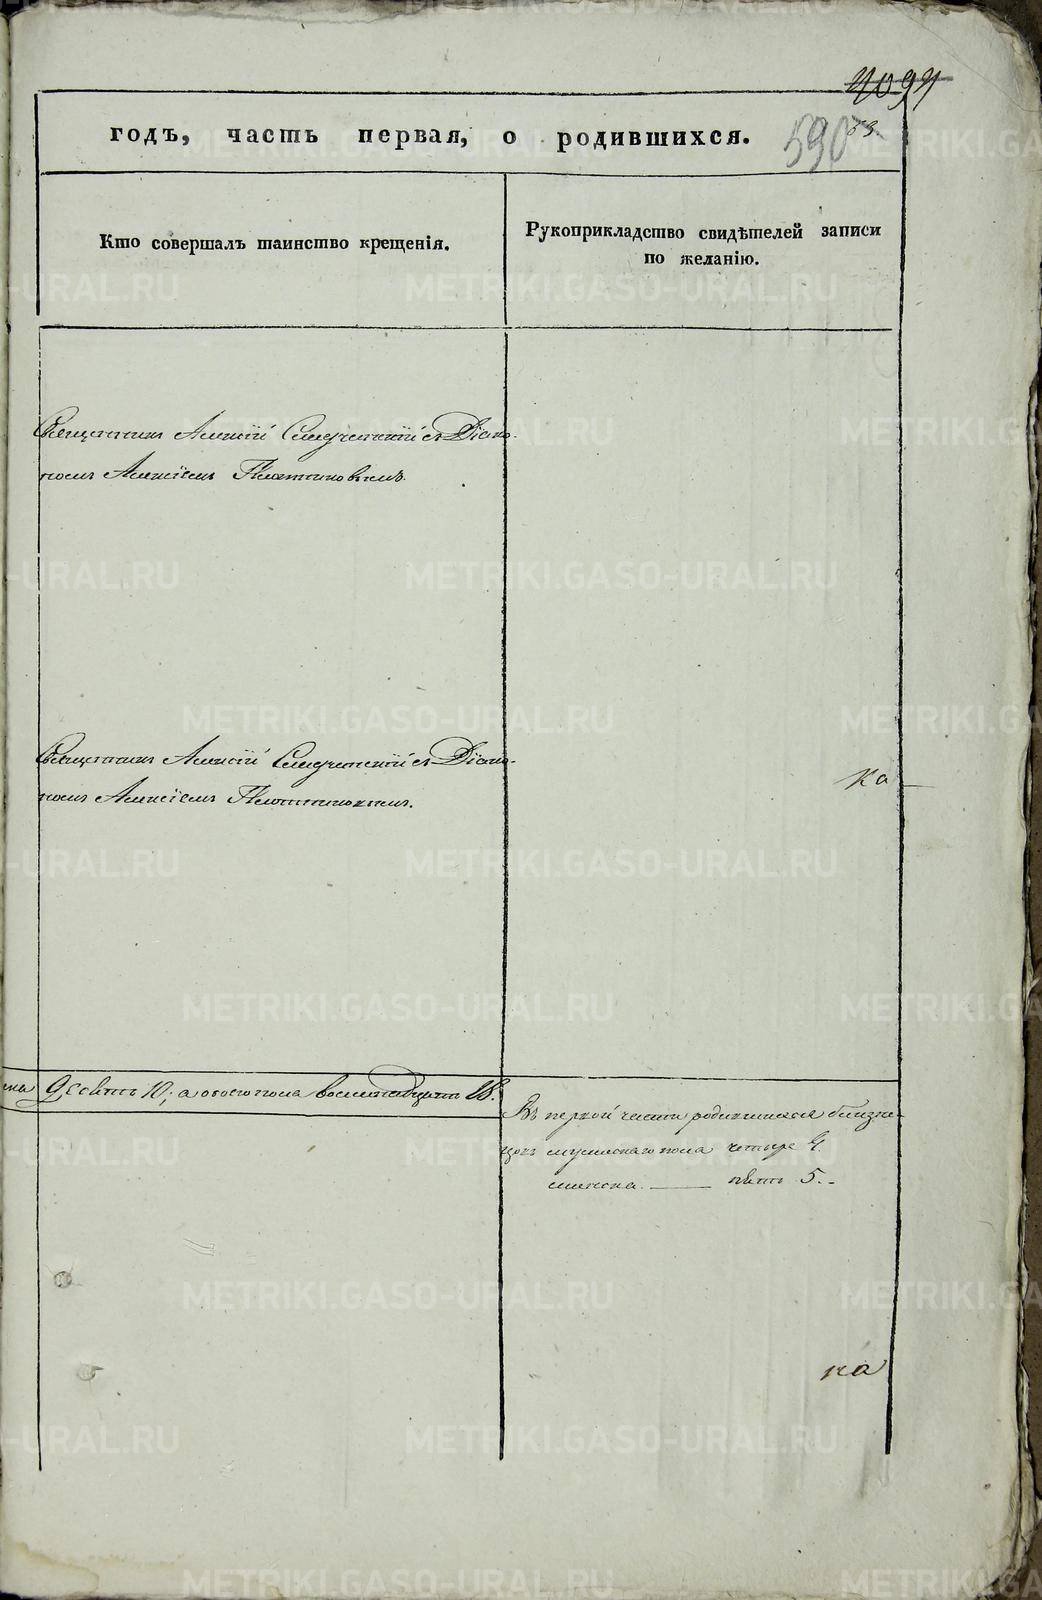 4094
годъ, часть первая, о родившихся.
590
Кто совершалъ таинство крещенія.
Рукоприкладство свидѣтелей записи
по желанію.
Священникъ Алексій съ Діако-
номъ Алексіемъ Платтиновымъ.
Священникъ Алексій съ Діако-
номъ Алексіемъ Платтиновымъ.
ка
десять 10; а обоего пола восемнадцать 18.
Въ первой части родившихся близне-
цовъ мужескаго пола четыре 4.
женска. — пять 5.
на
METRIKI.GASO-URAL.RU